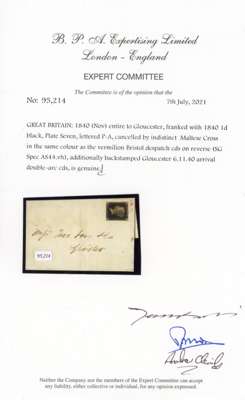 B. P. A. Expertising Limited
London - England
EXPERT COMMITTEE
The Committee is of the opinion that the
No: 95,214 7th July, 2021
GREAT BRITAIN: 1840 (Nov) entire to Gloucester, franked with 1840 1d
black, Plate Seven, lettered P-A, cancelled by indistinct Maltese Cross
in the same colour as the vermilion Bristol despatch cds on reverse (SG
Spec AS44.vh), additionally backstamped Gloucester 6.11.40 arrival
double-arc cds, is genuine.
95214
Neither the Company nor the members of the Expert Committee can accept
any liability, either corporate or individual, for any opinion expressed.